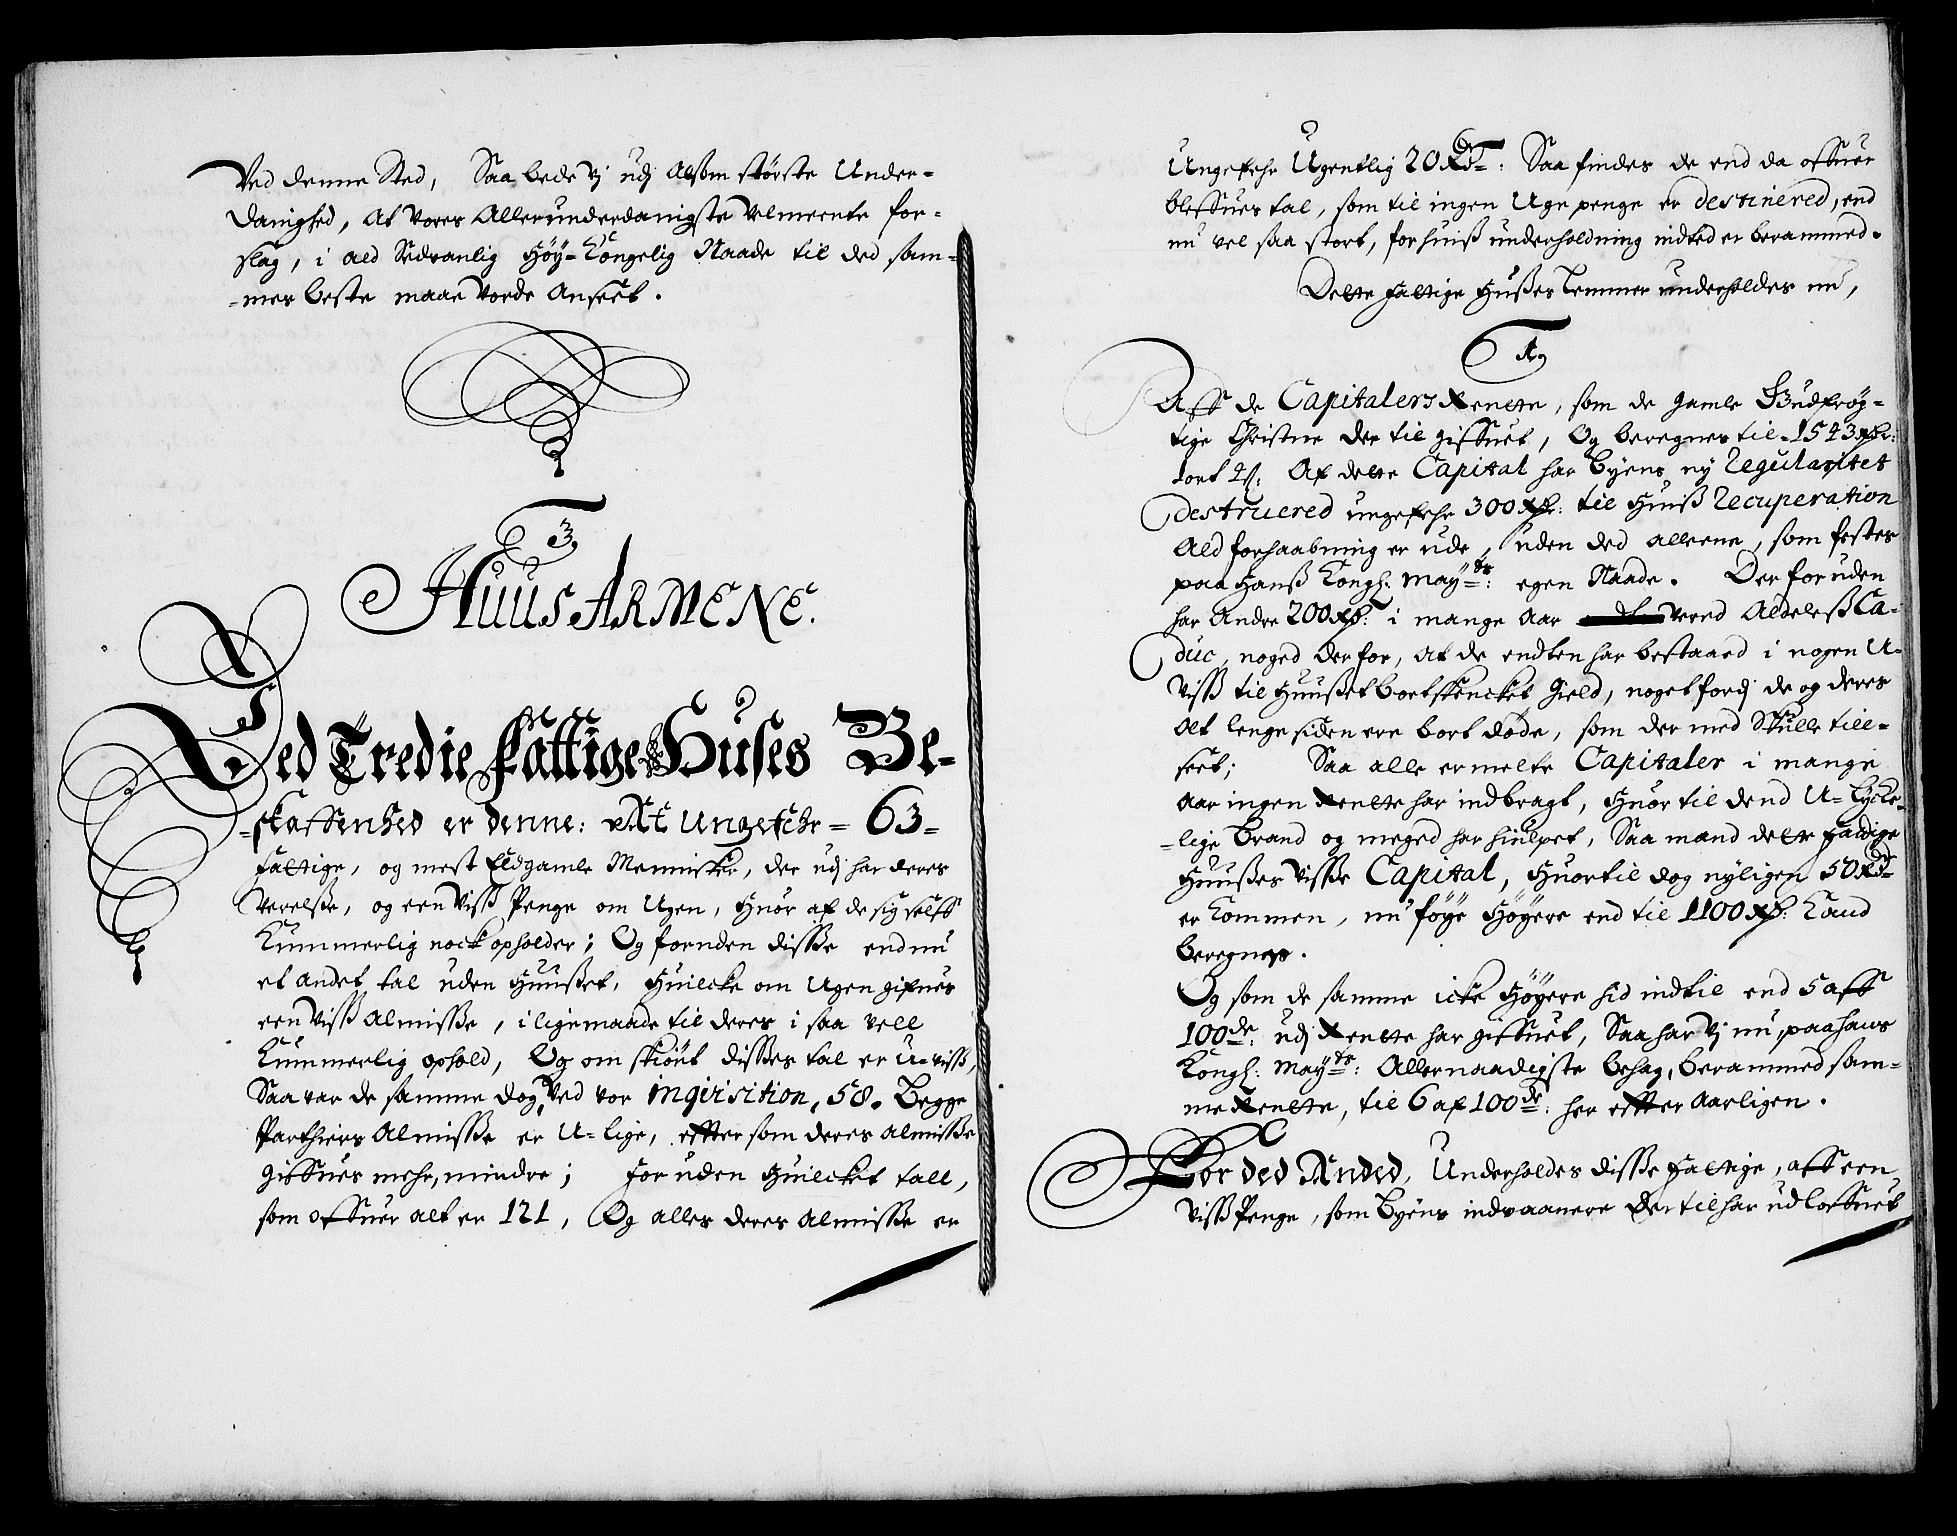 Ved denne Sted, Saa bede Vj udj Alsom største Under-
danighed, At Vores Allerunderdanigste Velmeente for-
slag, i ald Sedvanlig Høy-Kongelig Naade til ded sam-
-mes beste maae Vorde Anseet.
3.
HUUS ARMENE.
Ded Tredie Fattige Huses Be-
-skaffenhed er denne: At Ungefehr = 63 =
Fattige, og mest Eldgamle Mennisker, der udj har deres
Verelsse, og een Viss Penge om Ugen, Huor af de sig selff
Kummerlig nock opholder; Og foruden disse endnu
et andet tal uden Huusset, Huilcke om Ugen gifues
een Viss Almisse, i ligemaade til deres i saa vell
Kummerlig ophold, Og om skiønt disses tal er U-viss,
Saa var de samme dog, Ved vor inqvisition, 58. Begge
Parthiers Almisse er U-lige, effter som deres Almisse
giffues mehr, mindre; Foruden Huilcket tall,
som offuer alt er 121, Og alles deres Almisse er
Ungefehr Ugentlig 20 Rdr: Saa findes de end da offuer
bleffues tal, som til ingen Uge penge er destinered, end
nu vel saa stort, for huiss underholdning indted er berammed.
Dette Fattige Husses Lemmer underholdes nu,
1.
Aff de Capitalers Rentte, som de gamle Gudfrøg-
tige Christne der til giffuet, Og beregnes til 1543 Rdr:
1 ort 4 ß: Af dette Capital har Byens ny Regularitet
destruered ungefehr 300 Rdr: til Huiss Recuperation
Ald forhaabning er ude, uden ded alleene, som festes
paa Hanss Kongl: Maytz: egen Naade. Der foruden
har Andre 200 Rdr: i mange Aar vered Aldeless Ca-
duc, noged derfor, at de endten har bestaaed i nogen U-
viss til Huusset bortskencket Gield, noget fordj de og deres
alt lenge siden ere bort døde, som der med Skulle till-
seet; Saa alle ermelte Capitaler i mange
Aar ingen Rentte har indbragt, Huor til dend U-lycke-
-lige Brand og meged har hiulpet, Saa mand dette Fattige
Huusses Visse Capital, Huortil dog nyligen 50 Rdr
er Kommen, nu føye Høyere end til 1100 Rdr: Kand
beregnes.
Og som de samme icke Høyere hid indtil end 5 aff
100de: udj Rentte har giffuet, Saa har Vj nu, paa Hans
Kongl: Maytz: Allernaadigste behag, berammed sam-
me Rentte, til 6 af 100de: her effter Aarligen.
For ded Anded, Underholdes disse Fattige, aff een
Viss Penge, som Byens indvaanere der til har udloffuet